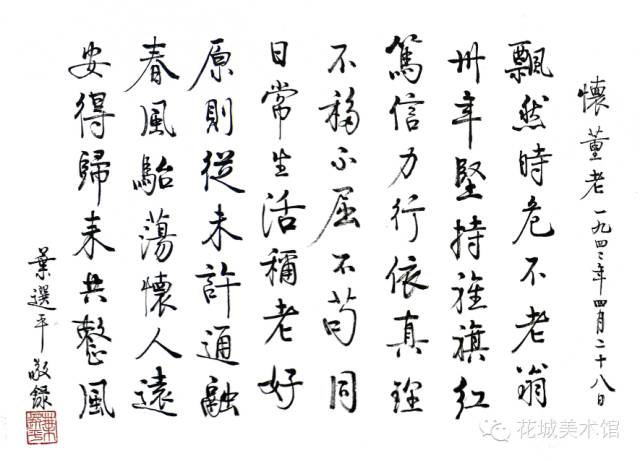 懷董老 一九四二年四月二十八日
飄然時危不老翁
卅年堅持旌旗紅
篤信力行依真理
不移不屈不苟同
日常生活稱老好
原則從未許通融
春風駘蕩懷人遠
安得歸來共整風
葉選平敬録
花城美术馆